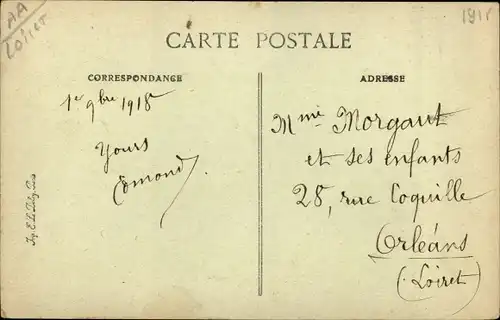 AA
Loiret
1918
CARTE POSTALE
CORRESPONDANCE
ADRESSE
1er 9bre 1918
Yours
Edmond
Mme Morgaut
et ses enfants
28, rue Coquille
Orléans
(Loiret)